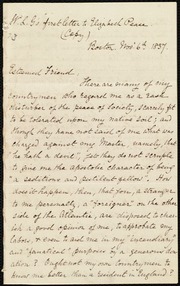 W. L. G's first letter to Elizabeth Pease
(Copy)
Boston, Nov. 6th 1837.
Esteemed Friend,
There are many of my
countrymen who regard me as a rash
disturber of the peace of Society, scarcely fit
to be tolerated upon my native soil; and
though they have not said of me what was
charged against my Master, namely, that
"he hath a devil," yet they do not scruple
to give me the apostolic character of being
"a seditious and pestilent fellow". How
does it happen, then, that you, a stranger
to me personally, a "foreigner" on the other
side of the Atlantic, are disposed to cherish
a good opinion of me, to approbate my
labors, & even to aid me in my "incendiary"
and "fanatical" purposes by a generous dona-
tion? Ought not my own countrymen to
know me better than a resident in England?